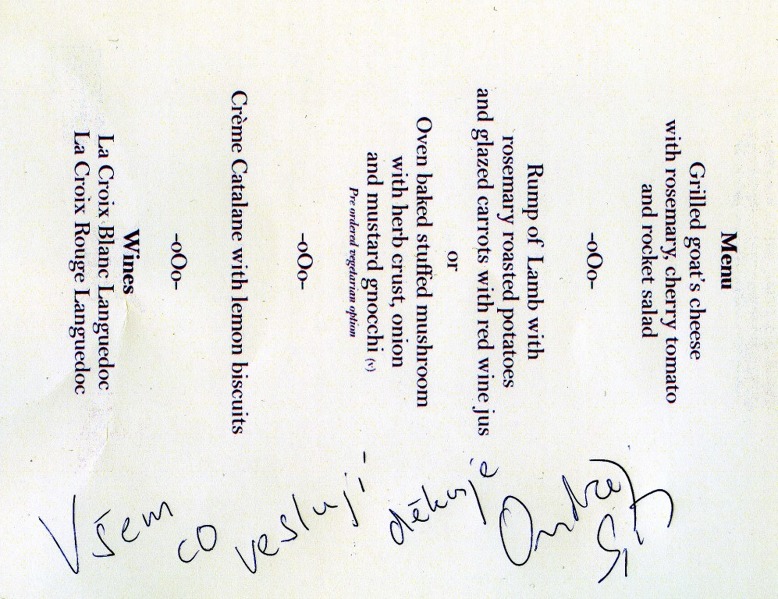 Menu
Grilled goat's cheese
with rosemary, cherry tomato
and rocket salad
-oOo-
Rump of Lamb with
rosemary roasted potatoes
and glazed carrots with red wine jus
or
Oven baked stuffed mushroom
with herb crust, onion
and mustard gnocchi (v)
Pre ordered vegetarian option
-oOo-
Crème Catalane with lemon biscuits
-oOo-
Wines
La Croix Blanc Languedoc
La Croix Rouge Languedoc
Všem co veslují děkuje Ondřej